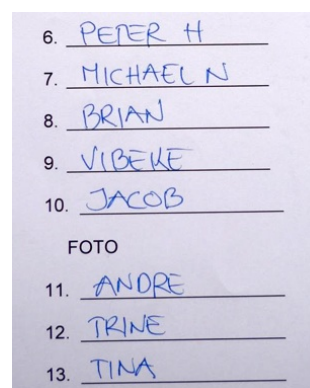 6. PETER H
7. MICHAEL N
8. BRIAN
9. VIBEKE
10. JACOB
FOTO
11. ANDRE
12. TRINE
13. TINA